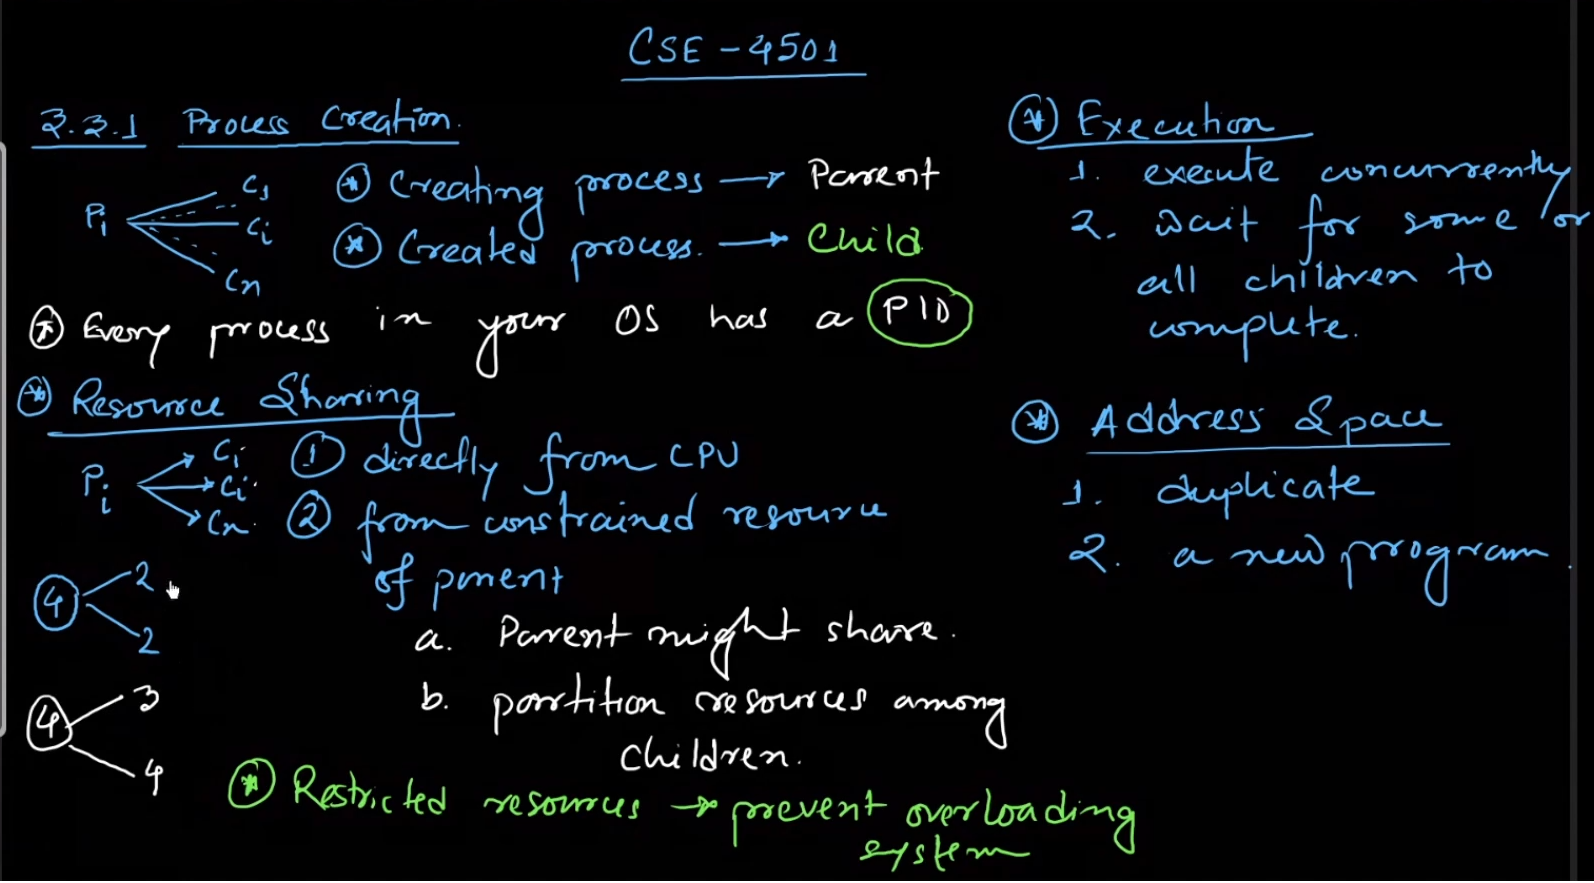 CSE-4501
3.3.1 Process Creation.
Pi C1 Ci Cn
* Creating process → Parent
* Created process. → Child
* Every process in your OS has a PID
* Resource Sharing
Pi Ci Ci Cn
① directly from CPU
② from constrained resource
of parent
4 2 2
a. Parent might share.
b. partition resources among
children.
4 3 4
* Restricted resources → prevent overloading
system
* Execution
1. execute concurrently
2. wait for some or
all children to
complete.
* Address Space
1. duplicate
2. a new program.